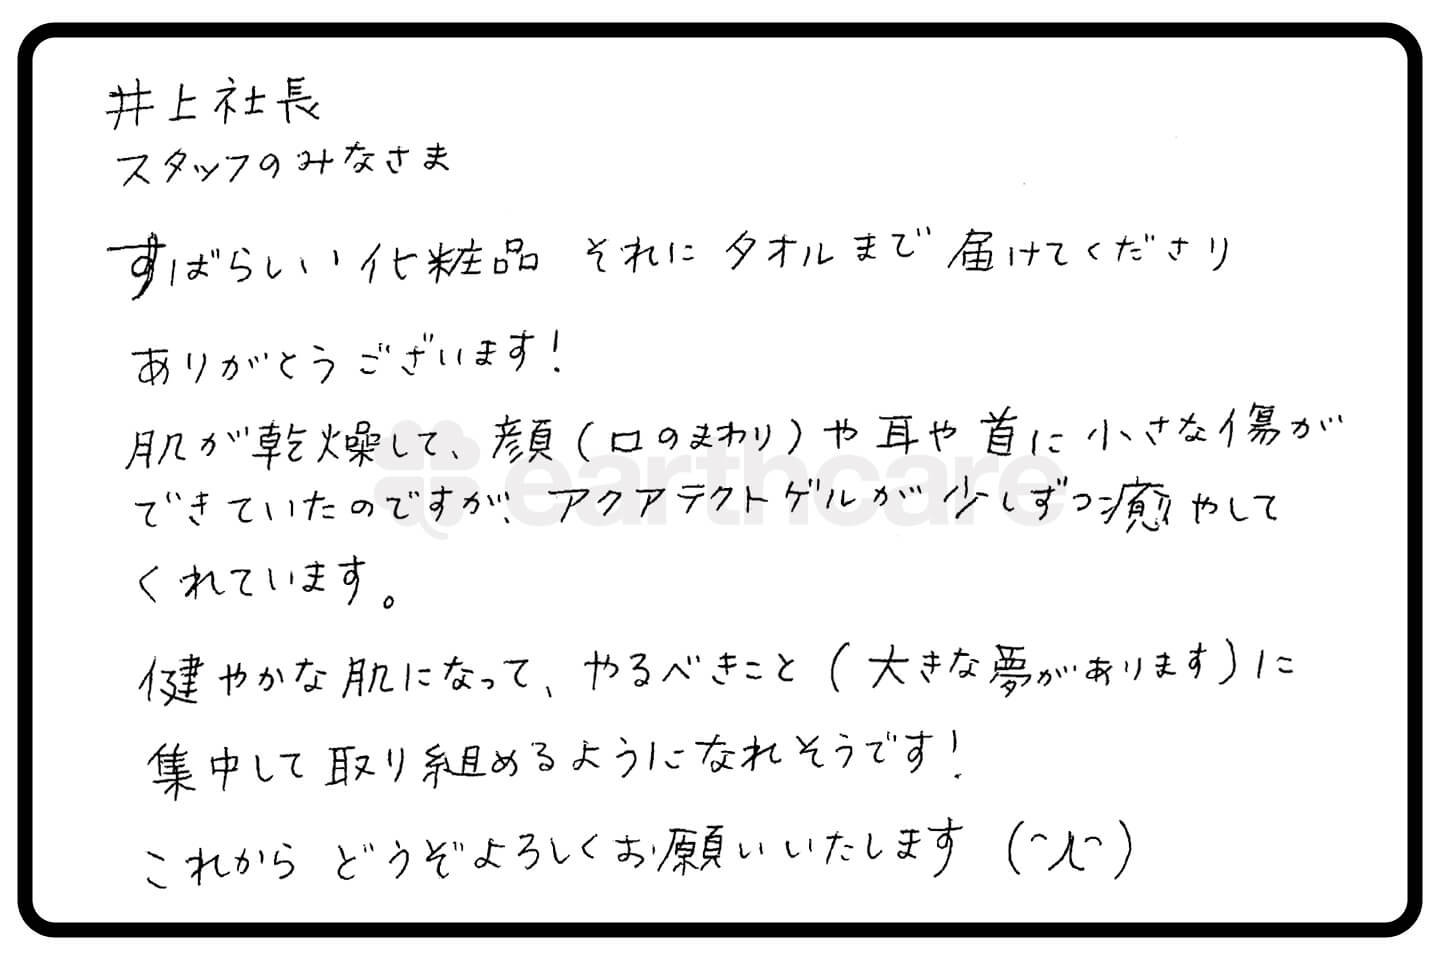 井上社長
スタッフのみなさま
すばらしい化粧品 それにタオルまで届けてくださり
ありがとうございます!
肌が乾燥して、顔(口のまわり)や耳や首に小さな傷が
できていたのですが、アクアテクトゲルが少しずつ癒やして
くれています。
健やかな肌になって、やるべきこと(大きな夢があります)に
集中して取り組めるようになれそうです!
これからどうぞよろしくお願いいたします(^人^)
earthcare